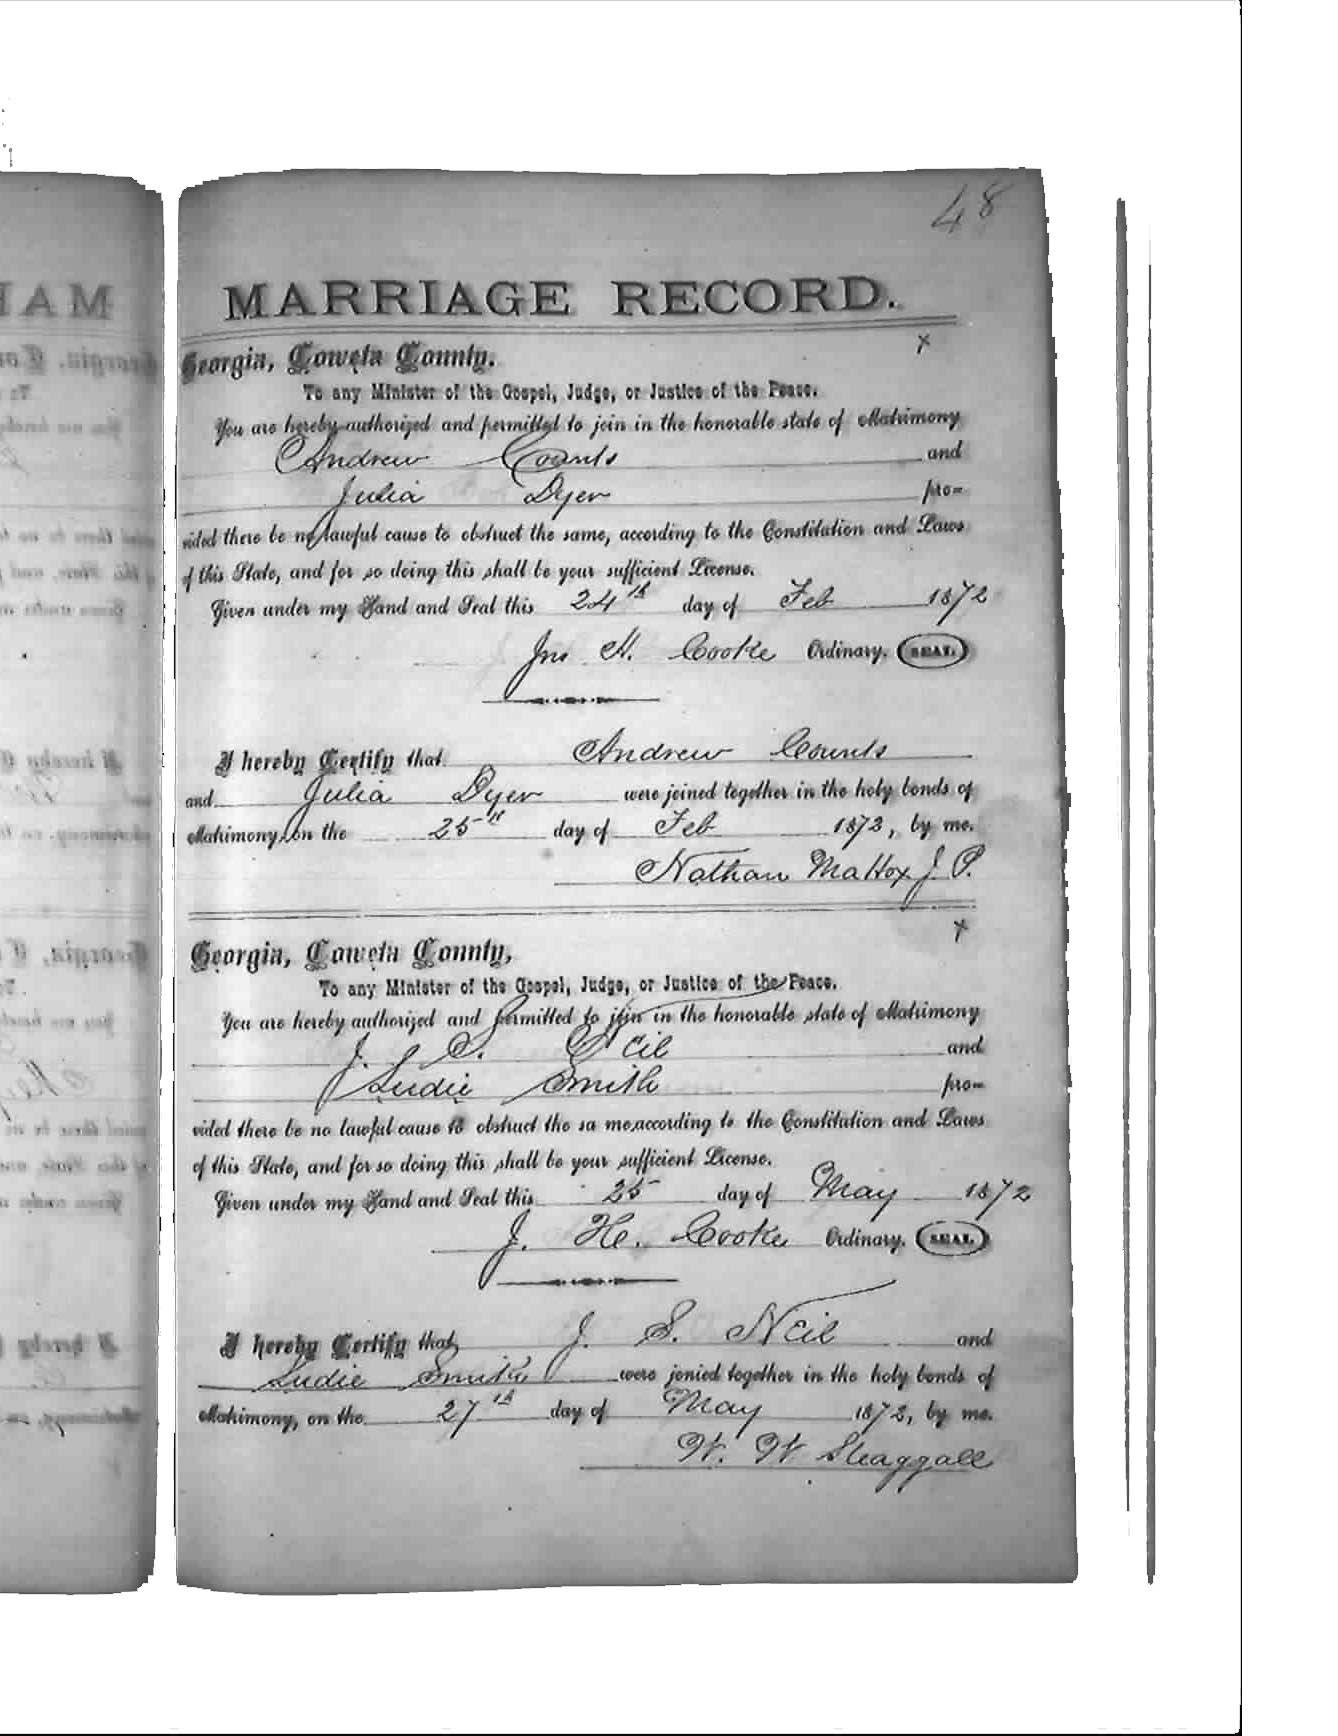 48
MARRIAGE RECORD.
Georgia, Coweta County.
To any Minister of the Gospel, Judge, or Justice of the Peace.
You are hereby authorized and permitted to join in the honorable state of Matrimony
Andrew Counts and
Julia Dyer pro=
vided there be no lawful cause to obstruct the same, according to the Constitution and Laws
of this State, and for so doing this shall be your sufficient License.
Given under my Hand and Seal this 24th day of Feb 1872
Jno H. Cooke Ordinary. SEAL
I hereby Certify that Andrew Counts
and Julia Dyer were joined together in the holy bonds of
Matrimony, on the 25th day of Feb 1872, by me.
Nathan Mattox J. P.
Georgia, Coweta County,
To any Minister of the Gospel, Judge, or Justice of the Peace.
You are hereby authorized and permitted to join in the honorable state of Matrimony
J. S. Neil and
Ludie Smith pro=
vided there be no lawful cause to obstruct the sa me, according to the Constitution and Laws
of this State, and for so doing this shall be your sufficient License.
Given under my Hand and Seal this 25 day of May 1872
J. H. Cooke Ordinary. SEAL
I hereby Certify that J. S. Neil and
Ludie Smith were jonied together in the holy bonds of
Matrimony, on the 27th day of May 1872, by me.
W. W.